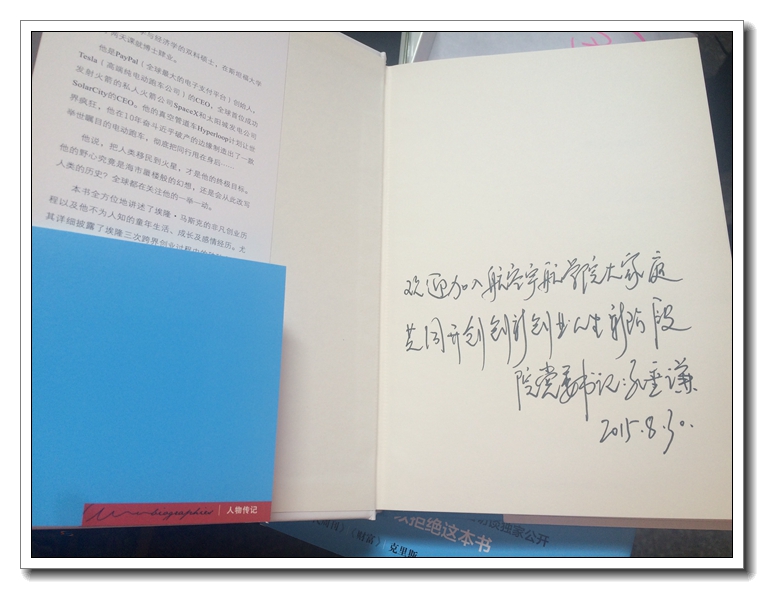 学与经济学的双料硕士，在斯坦福大学
两天课就博士肄业。
他是PayPal（全球最大的电子支付平台）创始人，
Tesla（高端纯电动跑车公司）的CEO，全球首位成功
发射火箭的私人火箭公司SpaceX和太阳城发电公司
SolarCity的CEO。他的真空管道车Hyperloop计划让世
界疯狂，他在10年奋斗近乎破产的边缘制造出了一款
举世瞩目的电动跑车，彻底把同行甩在身后……
他说，把人类移民到火星，才是他的终极目标。
他的野心究竟是海市蜃楼般的幻想，还是会从此改写
人类的历史？全球都在关注他的一举一动。
本书全方位地讲述了埃隆·马斯克的非凡创业历
程以及他不为人知的童年生活、成长及感情经历。尤
其详细披露了埃隆三次跨界创业过程中的
biographies 人物传记
欢迎加入航空宇航学院大家庭
共同开创创新创业人生新阶段
院党委书记：孔垂谦
2015.8.30.
独家公开
拒绝这本书
《财富》 克里斯